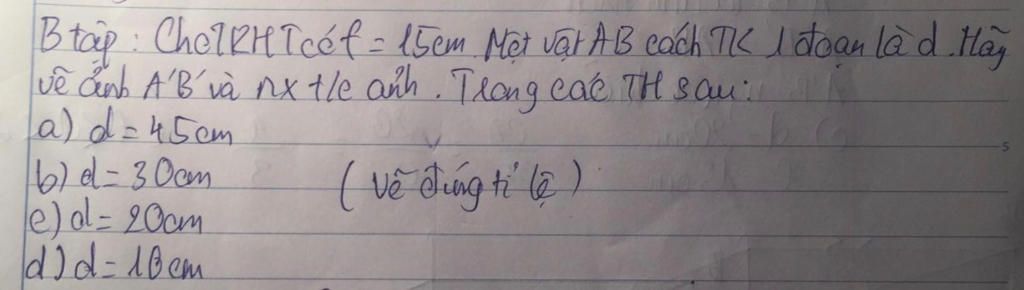 B tập : Cho TKHT có f = 15cm. Một vật AB cách TK 1 đoạn là d. Hãy
vẽ ảnh A'B' và nx t/c ảnh. Trong các TH sau:
a) d = 45cm
b) d = 30cm (vẽ đúng tỉ lệ)
c) d = 20cm
d) d = 10cm